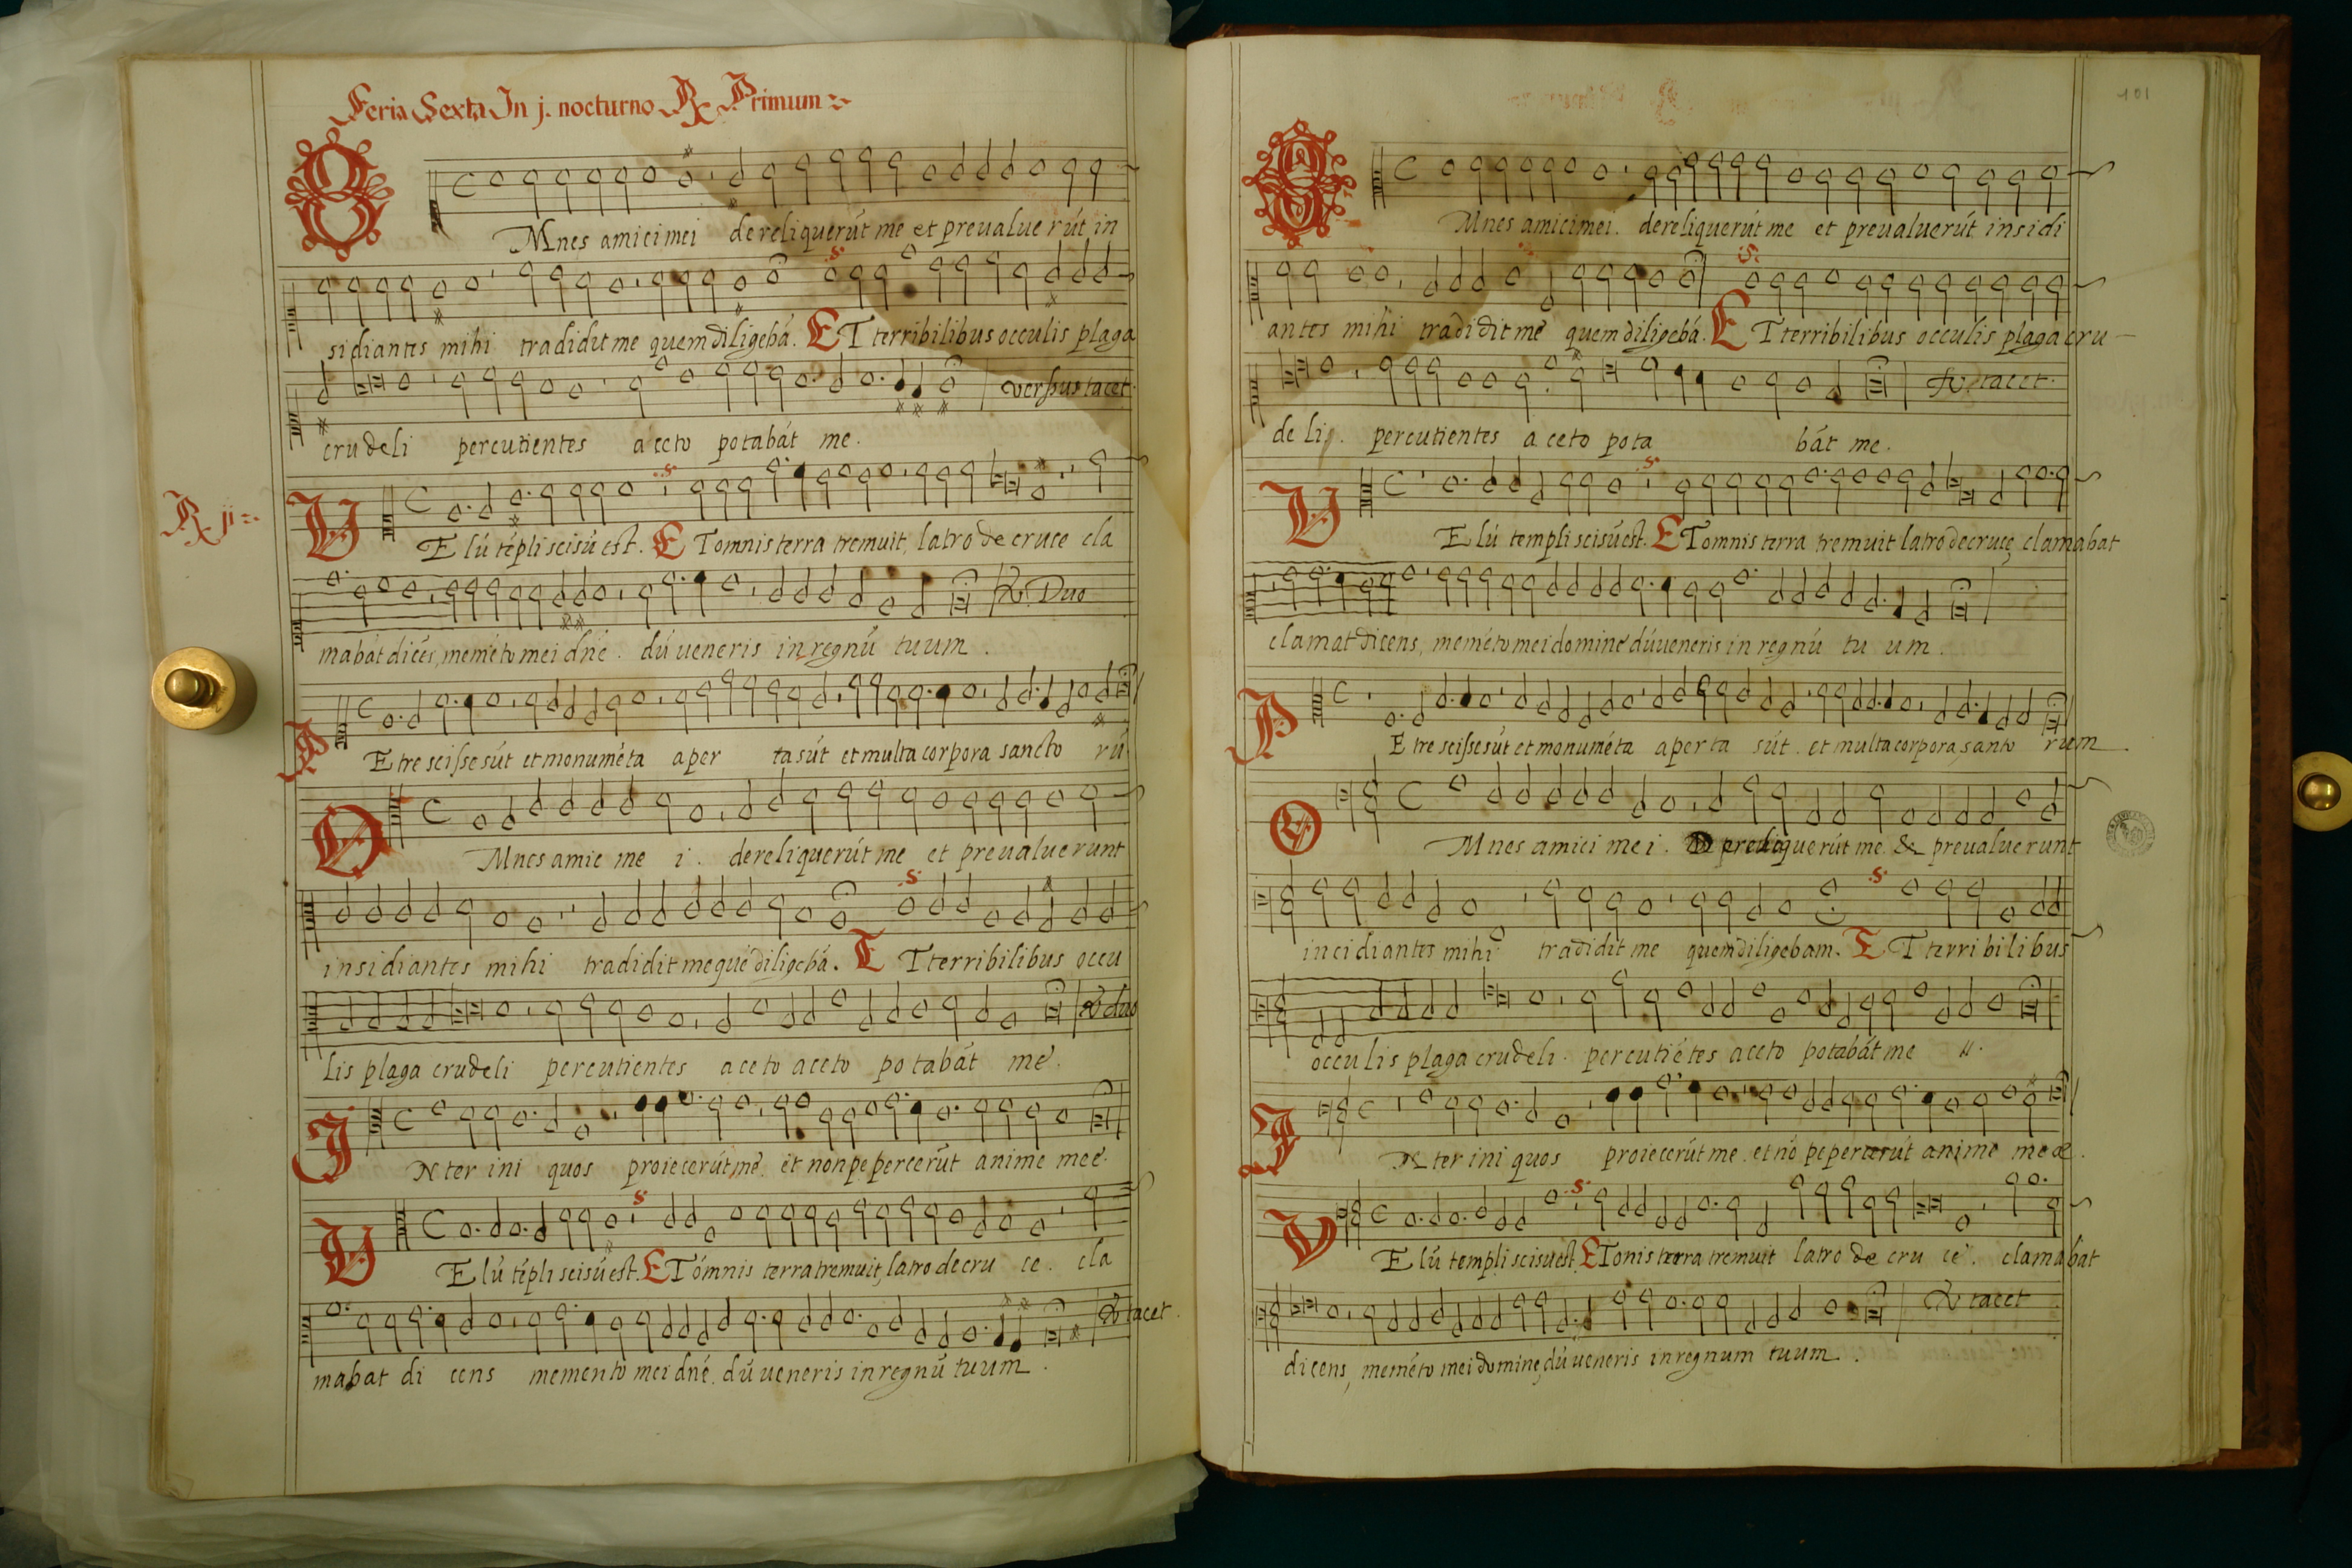 Feria Sexta In j. nocturno R Primum
OMnes amici mei dereliquerút me et preualue rút in
sidiantes mihi tradidit me quem diligebá. ET terribilibus occulis plaga
crudeli percutientes aceto potabát me. versus tacet.
R ij
VElú tépli scisú est. ET omnis terra tremuit, latro de cruce cla
mabát dicés, meméto mei dné. dú ueneris in regnú tuum. Duo
PEtre scisse sút et monuméta aper ta sút et multa corpora sancto rú
OMnes amic me i. dereliquerút me et preualuerunt
insidiantes mihi tradidit me qué diligebá. ET terribilibus occu
lis plaga crudeli percutientes aceto aceto potabát me. duo
INter ini quos proiecerút me. et non pepercerút anime mee.
VElú tépli scisú est. ET ómnis terra tremuit, latro de cru ce. cla
mabat di cens memento mei dné. dú ueneris in regnú tuum. tacet.
101
OMnes amici mei. dereliquerút me et preualuerút insidi
antes mihi tradidit me quem diligebá. ET terribilibus occulis plaga cru
delis. percutientes aceto pota bát me. tacet.
VElú templi scisú est. ET omnis terra tremuit latro de cruce, clamabat
clamat dicens, meméto mei domine dú ueneris in regnú tu um.
PEtre scisse sút et monuméta aperta sút. et multa corpora, santo rum
OMnes amici mei. Dereliquerút me. & preualuerunt
incidiantes mihi tradidit me quem diligebam. ET terribilibus
occulis plaga crudeli. percutiétes aceto potabát me ij.
INter ini quos proiecerút me. et nó pepercerút anime meæ.
VElú templi scisú est. ET onis terra tremuit latro de cru ce. clamabát
dicens, meméto mei domine, dú ueneris in regnum tuum. tacet